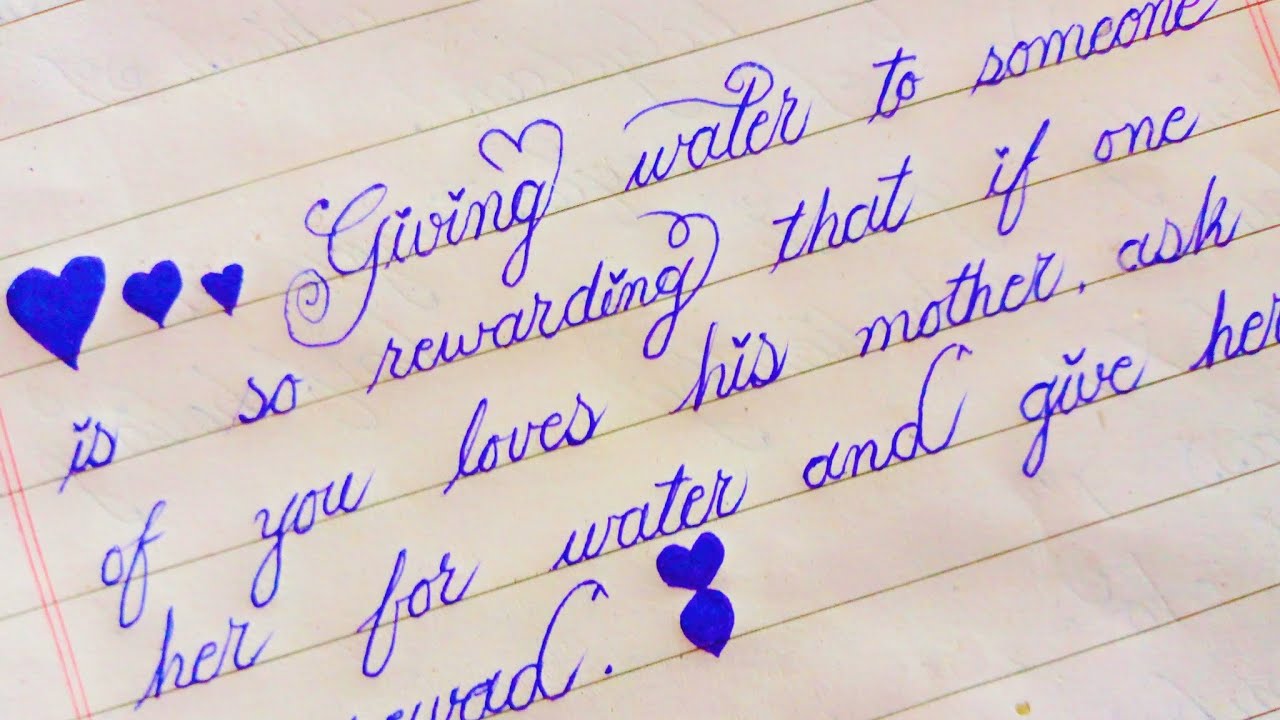 Giving water to someone
is so rewarding that if one
of you loves his mother. ask
her for water and give her